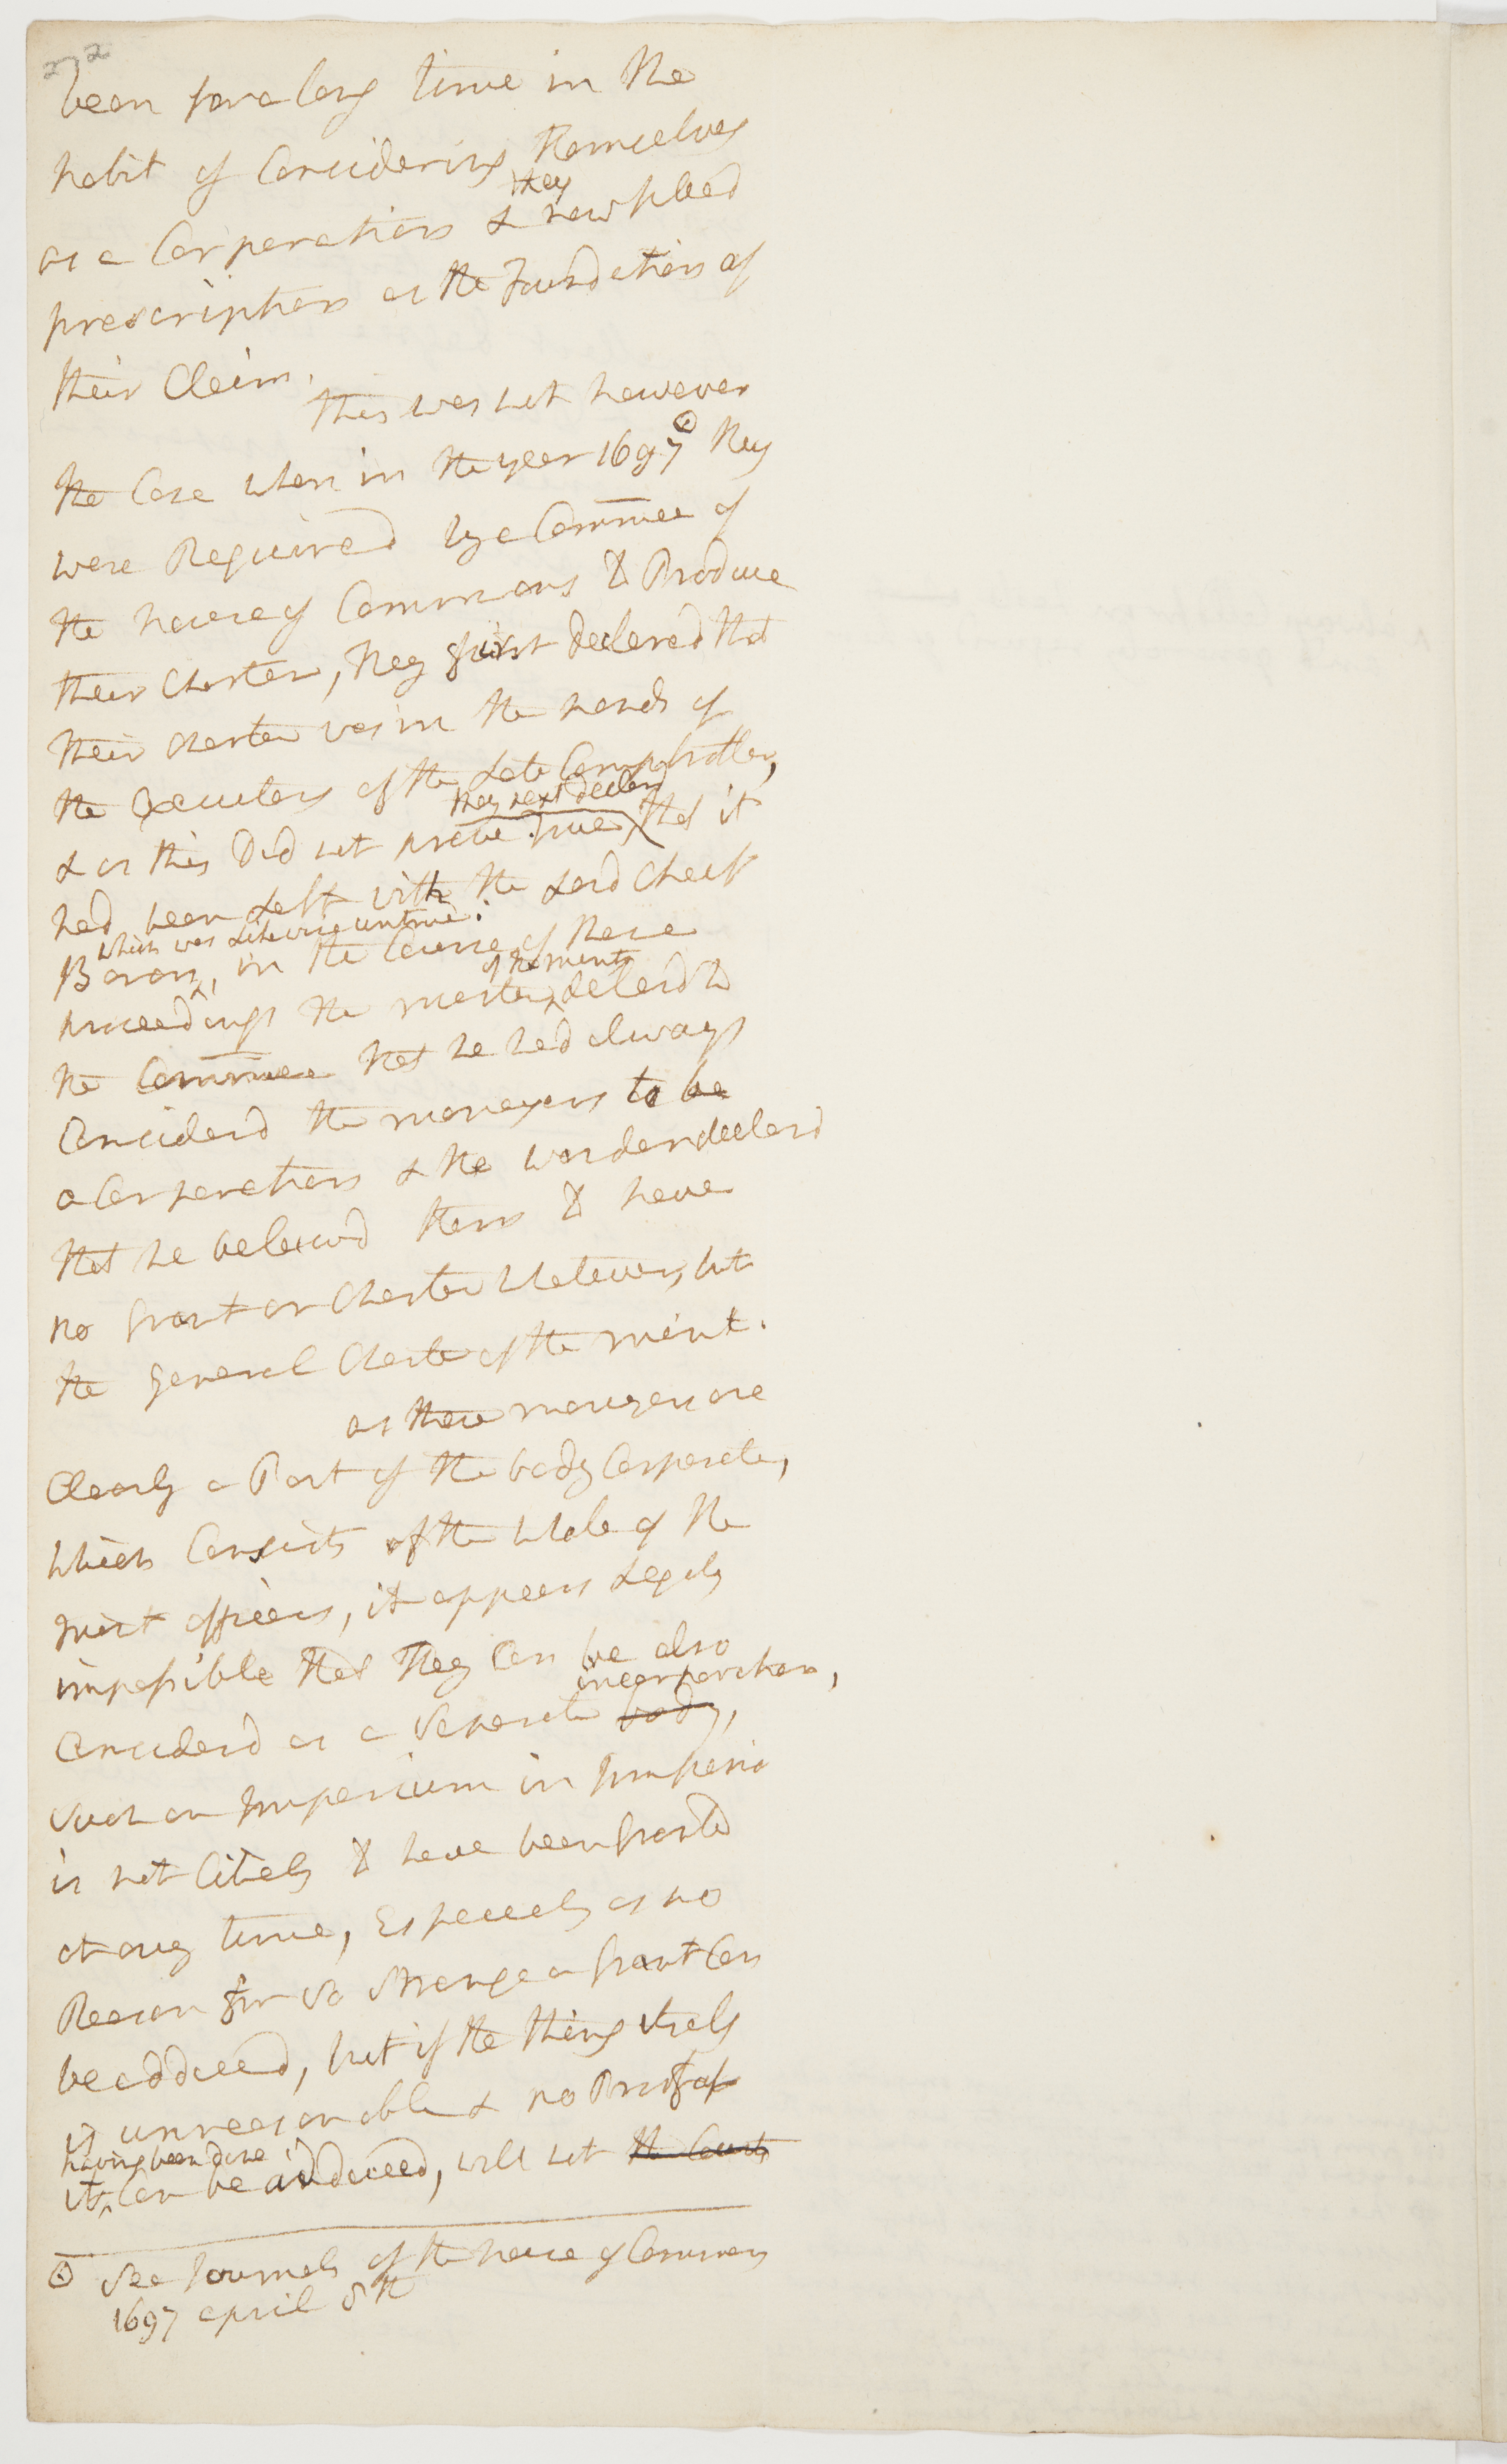 272
been for a long time in the
habit of Considering themselves
as a Corporation & they now plead
prescription as the Foundation of
their Claim.
this was not however
the Case when in the year 1697 ⊙ they
were Required by a Commee of
the house of Commons to Produce
their Charter, they first declared that
their charter was in the hands of
the Executors of the Late Comptroller,
& as this Did not prove true, they next declard that it
had been Left with the Lord Cheif
Baron, which was Likewise untrue: in the Course of these
proceedings the master of the mint declard to
the Commee that he had always
Considerd the moneyers to be
a Corporation & the warden declard
that he beleivd them to have
no Grant or Charter whatever, but
the general Charter of the mint.
as these moneyers are
Clearly a Part of the body Corporate,
which Consists of the whole of the
mint officers, it appears Legaly
impossible that they Can be also
Considerd as a Seperate body, incorporation,
Such an Imperium in Imperio
is not likely to have been Granted
at any time, Especialy as no
Reason for So Strange a Grant Can
be adduced, but if the thing itself
is unreasonable & no Proof of
it having been done Can be adduced, will not the Courts
⊙ See Journals of the house of Commons
1697 april 8th